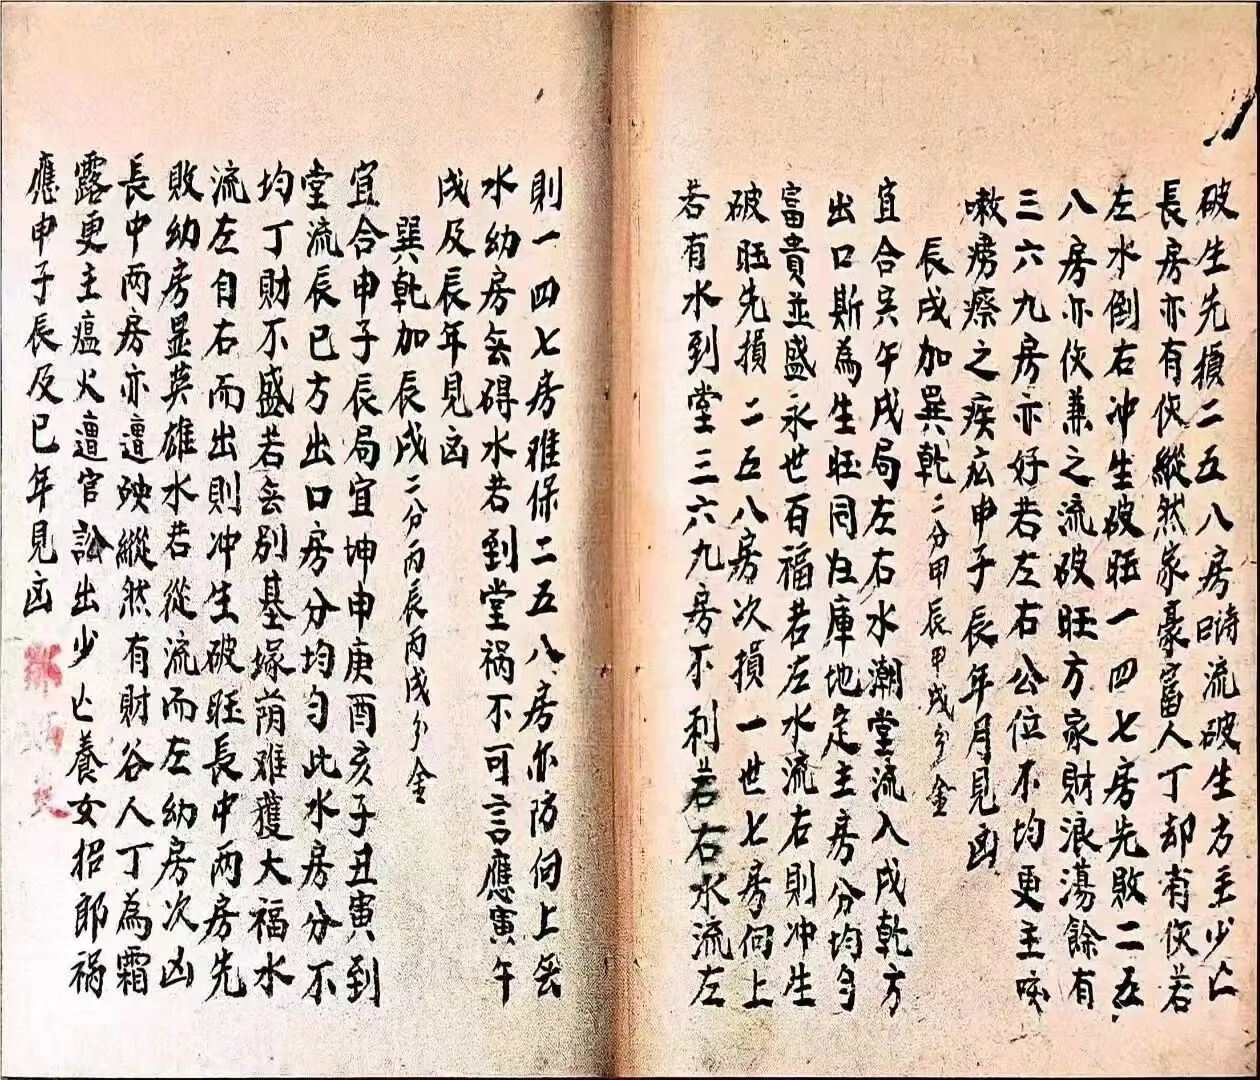 破生先損二五八房時流破生方主少亡
長房亦有伙縱然家豪富人丁却有伙若
左水倒右冲生破旺一四七房先敗二五
八房亦伙兼之流破旺方家財浪蕩餘有
三六九房亦好若左右公位不均更主咳
嗽癆瘵之疾応申子辰年月見凶
辰戌加巽乾二分甲辰甲戌分金
宜合寅午戌局左右水潮堂流入戌乾方
出口斯為生旺同归庫地定主房分均匀
富貴並盛永世百福若左水流右則冲生
破旺先損二五八房次損一世七房向上
若有水到堂三六九房不利若右水流左
則一四七房难保二五八房亦防向上無
水幼房無碍水若到堂祸不可言應寅午
戌及辰年見凶
巽乾加辰戌二分丙辰丙戌分金
宜合申子辰局宜坤申庚酉亥子丑寅到
堂流辰巳方出口房分均匀此水房分不
均丁財不盛若無別基塚荫难獲大福水
流左自右而出則冲生破旺長中兩房先
敗幼房显英雄水若從流而左幼房次凶
長中两房亦遭殃縱然有財谷人丁為霜
露更主瘟火遭官訟出少亡養女招郎祸
應申子辰及巳年見凶